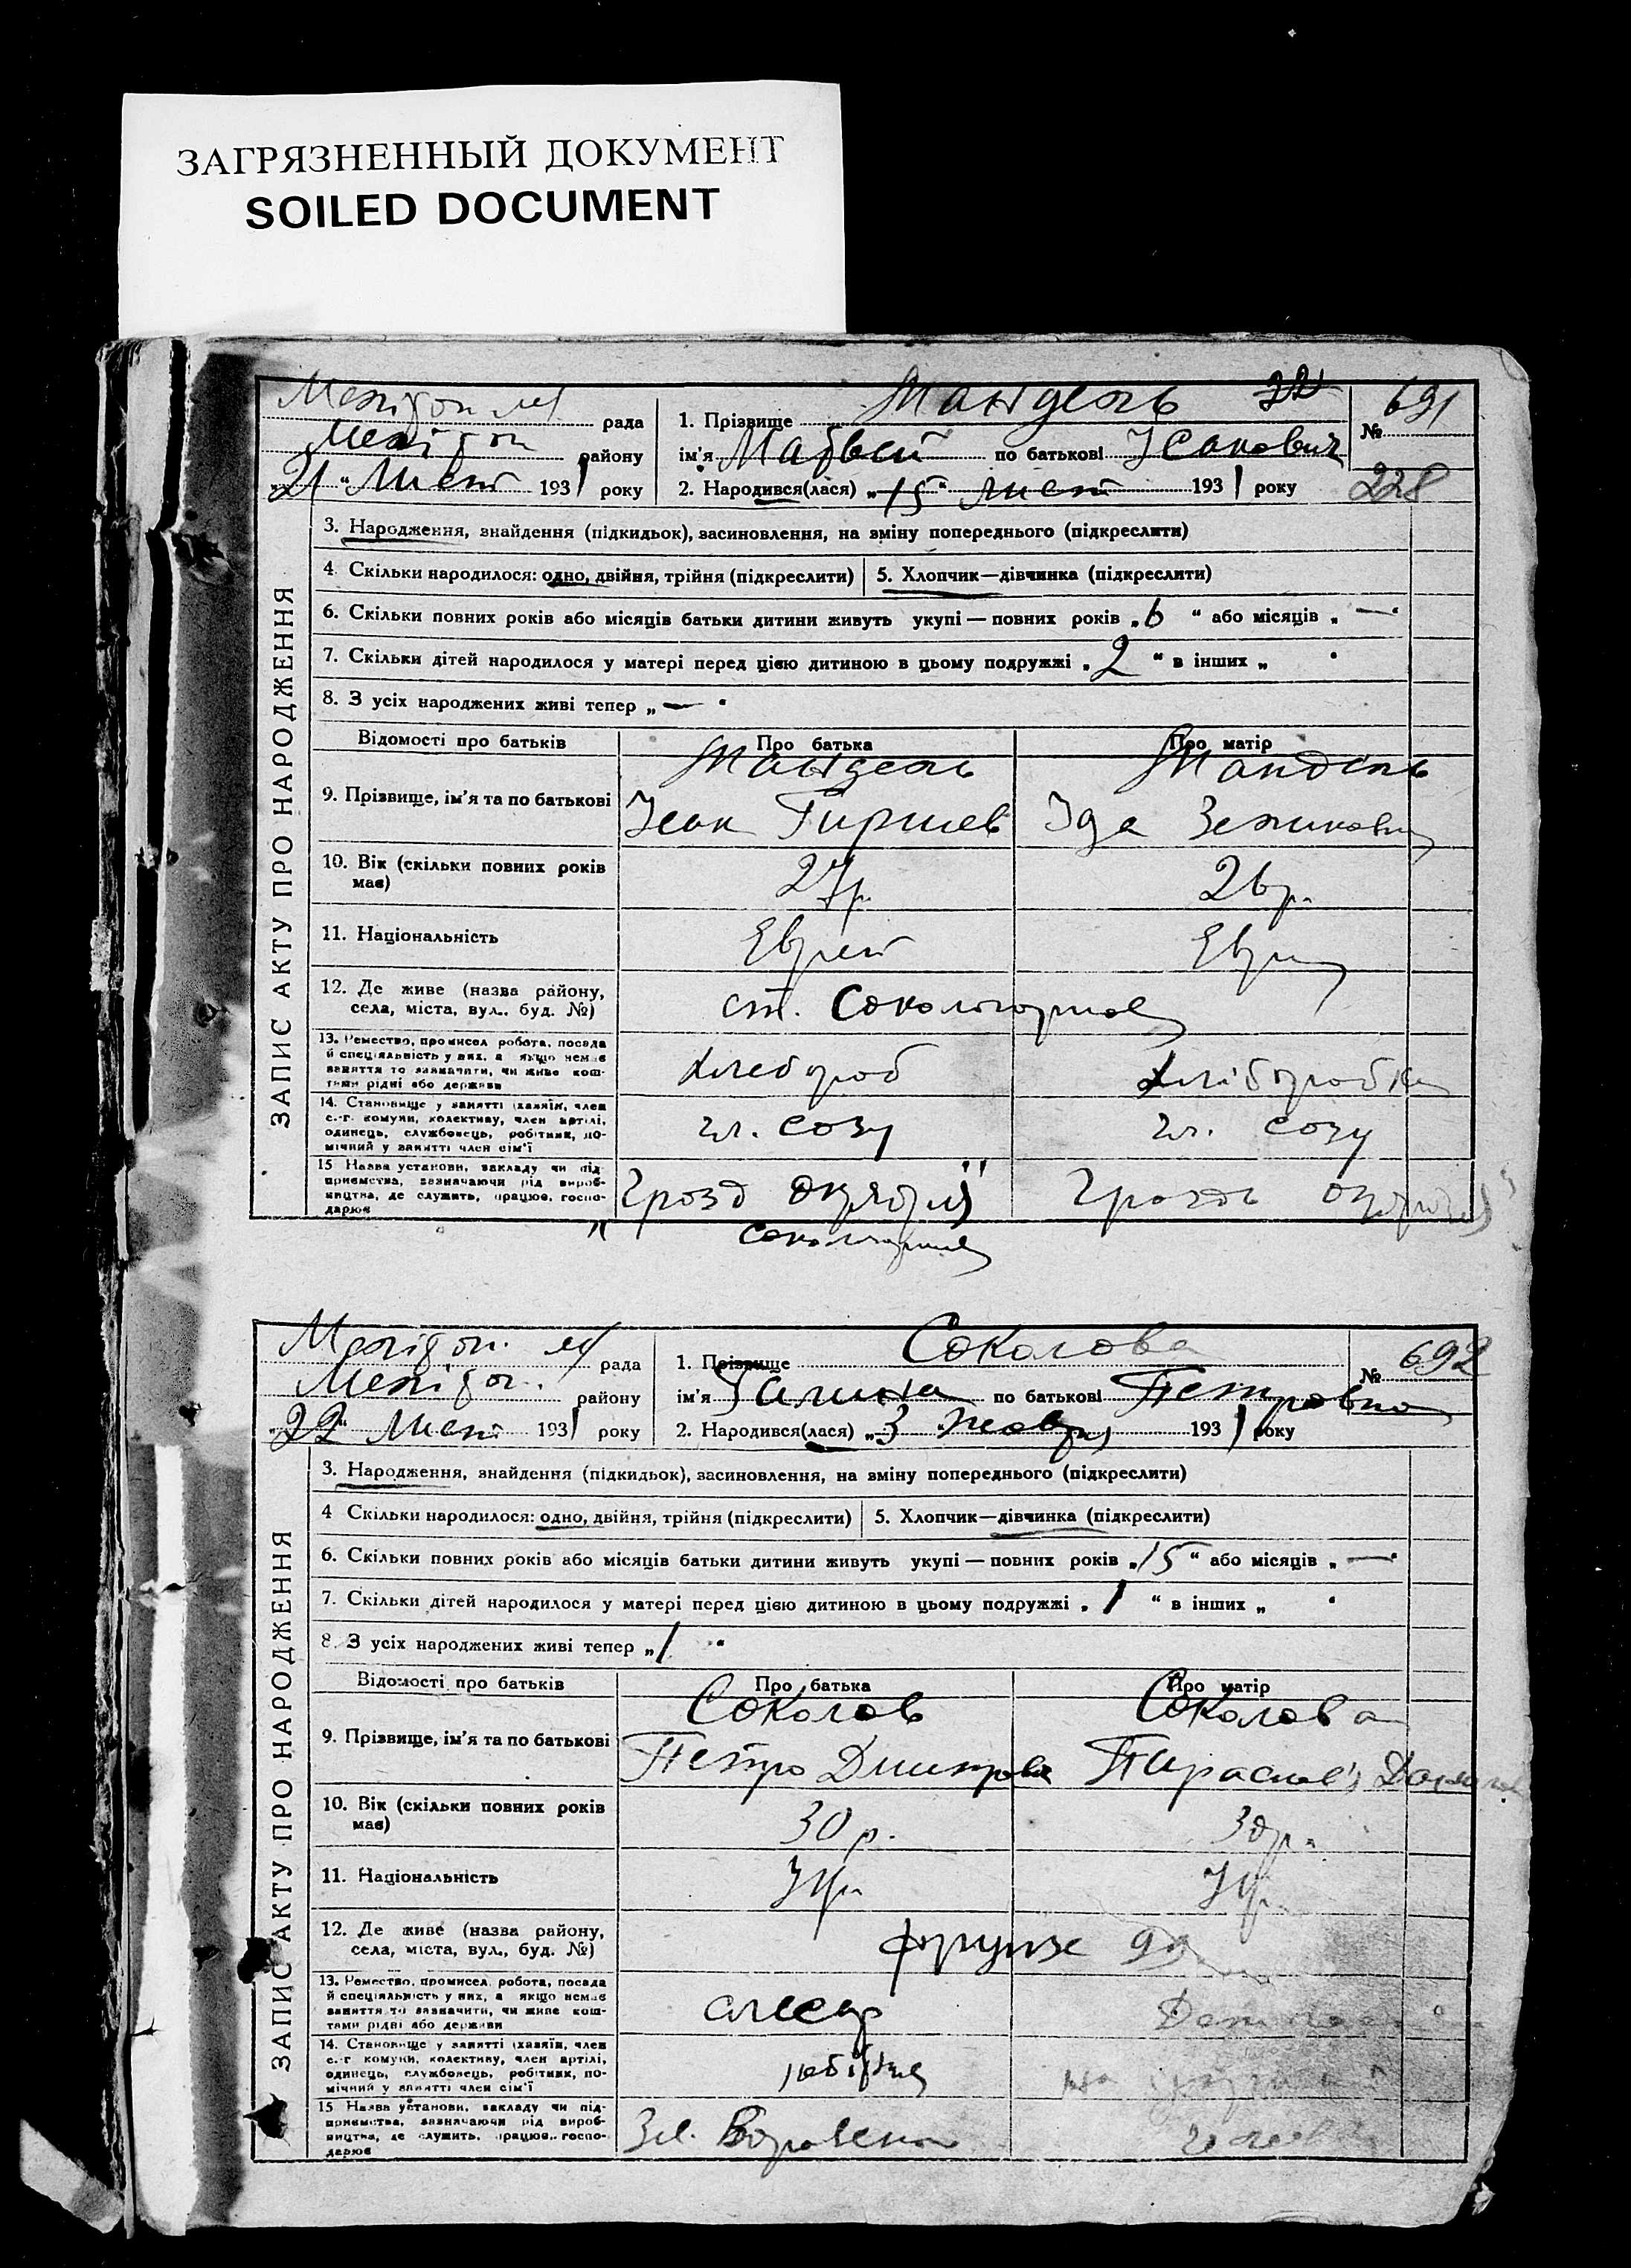 ЗАГРЯЗНЕННЫЙ ДОКУМЕНТ
SOILED DOCUMENT
ЗАПИС АКТУ ПРО НАРОДЖЕННЯ
рада
району
21 " Лист 1931 року
1. Прізвище Мандель 32
ім'я Матвей по батькові Ісакович
2. Народився(лася) „15" лист 1931 року
№ 691
228
3. Народження, знайдення (підкидьок), засиновлення, на зміну попереднього (підкреслити)
4. Скільки народилося: одно, двійня, трійня (підкреслити) 5. Хлопчик—дівчинка (підкреслити)
6. Скільки повних років або місяців батьки дитини живуть укупі — повних років „6 " або місяців „ — "
7. Скільки дітей народилося у матері перед цією дитиною в цьому подружжі „ 2 " в інших „ "
8. З усіх народжених живі тепер „ — "
Відомості про батьків Про батька Про матір
Мандель Мандель
9. Прізвище, ім'я та по батькові Ісак Гиршев Іда
10. Вік (скільки повних років має) 27 р. 26 р.
11. Національність Еврей
12. Де живе (назва району, села, міста, вул.. буд. №) ст.
13. Ремество, промисел робота, посада й спеціяльність у них, а якщо немає заняття то зазначити, чи живе коштами рідні або держави хлебороб хліборобка
14. Становище у занятті (хазяїн, член с.-г. комуни, колективу, член артілі, одинець, службовець, робітник, помічний у занятті член сім'ї чл. созу чл. созу
15 Назва установи, закладу чи підприємства, зазначаючи рід виробництва, де служить, працює, господарює
ЗАПИС АКТУ ПРО НАРОДЖЕННЯ
рада
району
22 " Лист 1931 року
1. Прізвище Соколова
ім'я Галина по батькові Петровна
2. Народився(лася) „3 " Жовтн 1931 року
№ 692
3. Народження, знайдення (підкидьок), засиновлення, на зміну попереднього (підкреслити)
4 Скільки народилося: одно, двійня, трійня (підкреслити) 5. Хлопчик—дівчинка (підкреслити)
6. Скільки повних років або місяців батьки дитини живуть укупі — повних років „15 " або місяців „ — "
7. Скільки дітей народилося у матері перед цією дитиною в цьому подружжі „ 1 " в інших „ "
8. З усіх народжених живі тепер „ 1 "
Відомості про батьків Про батька Про матір
Соколов Соколова
9. Прізвище, ім'я та по батькові Петро Дмитров
10. Вік (скільки повних років має) 30 р. 30 р.
11. Національність Укр. Укр.
12. Де живе (назва району, села, міста, вул., буд. №) Фрунзе
13. Ремество, промисел, робота, посада й спеціяльність у них, а якщо немає заняття то зазначити, чи живе коштами рідні або держави слесар
14. Становище у занятті (хазяїн, член с.-г комуни, колективу, член артілі, одинець, службовець, робітник, помічний у занятті член сім'ї робітник
15 Назва установи, закладу чи підприємства, зазначаючи рід виробництва, де служить, працює, господарює